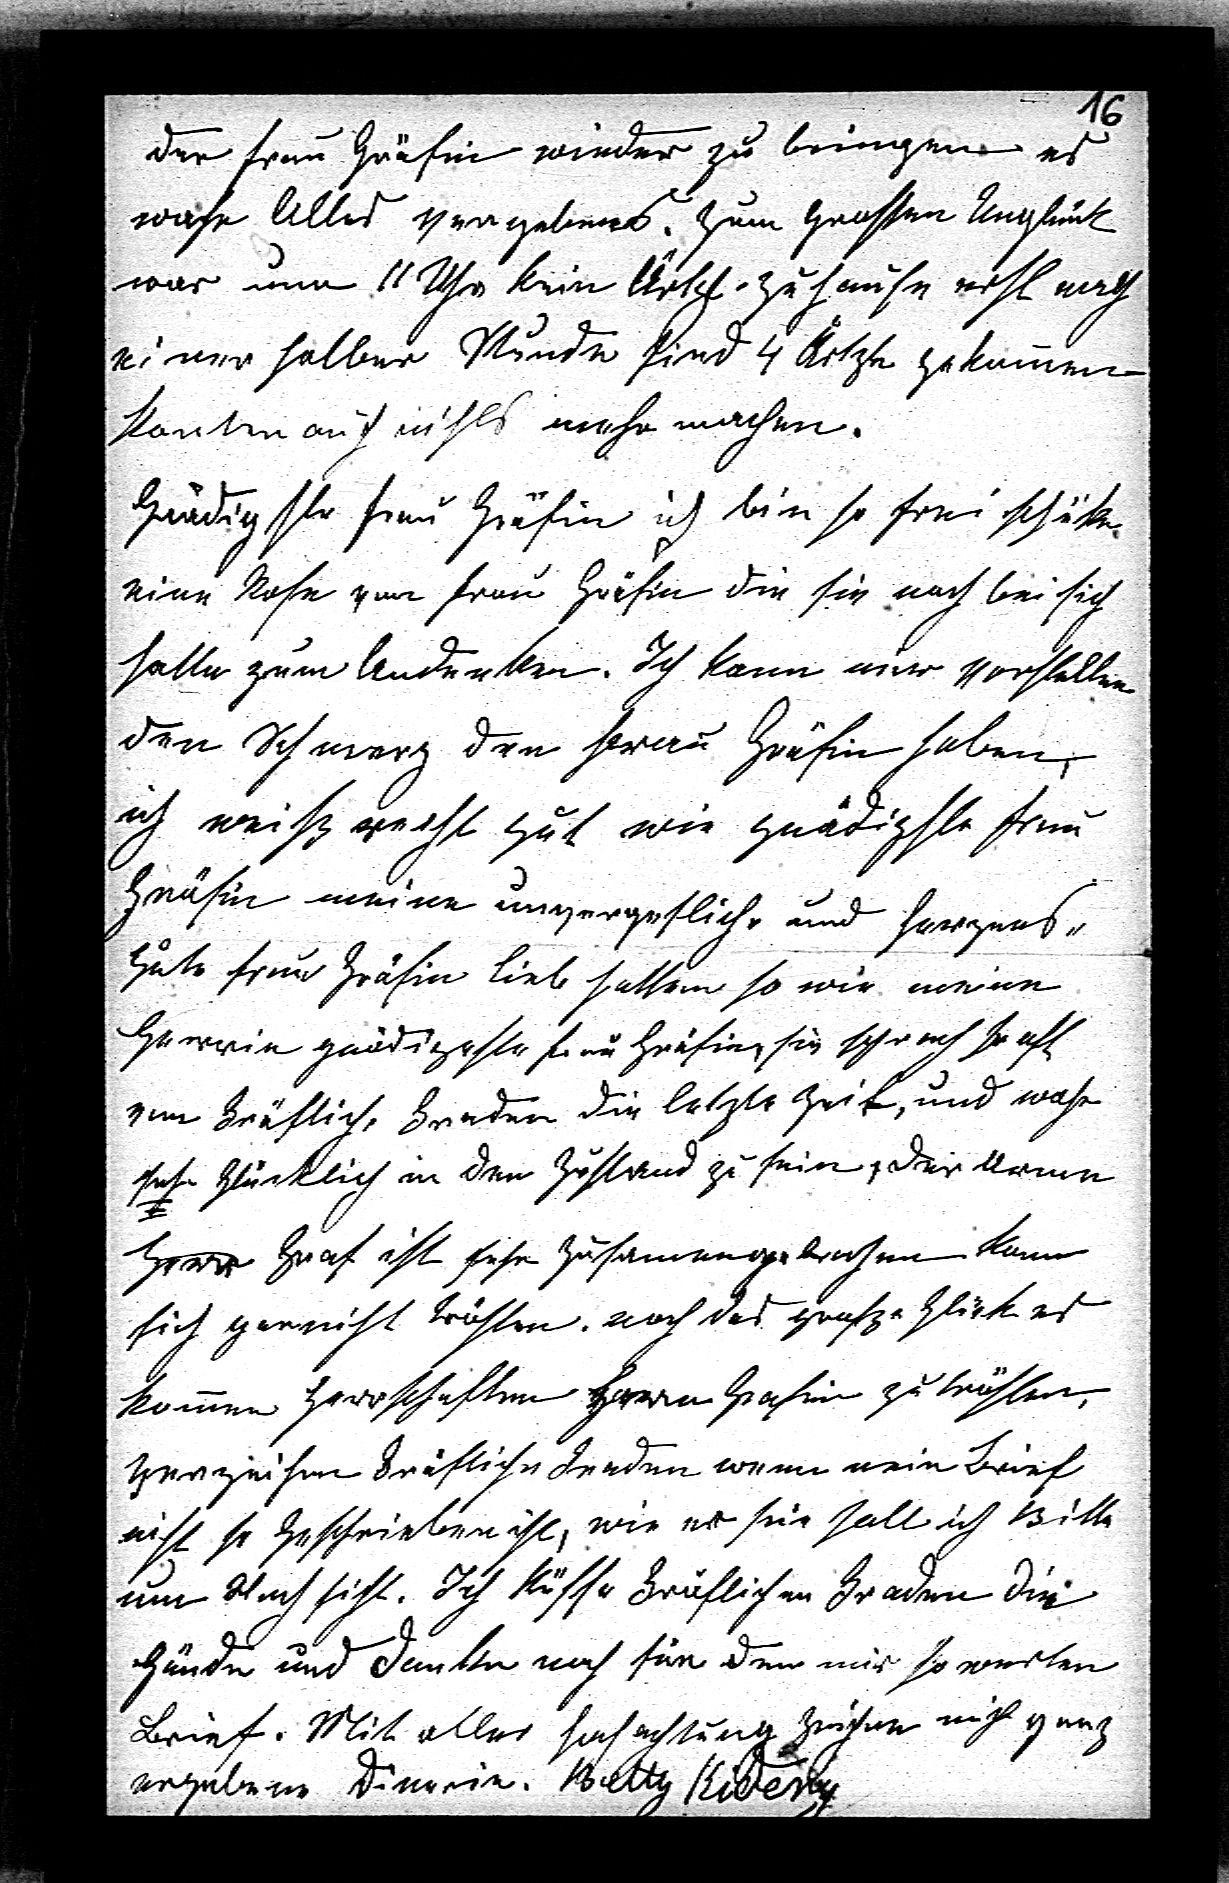 16
der frau Gräfin wieder zu bringen es
wahr Alles vergebens. Zum grossen Unglück
war um 11 Uhr kein Artzt zuhause erst nach
einer halber Stunde sind 4 Ärtzte gekom̄en
konten auch nichts mehr machen.
Gnädigste frau Gräfin ich bin so frei schüke
eine Rose von frau Gräfin die sie noch bei sich
hatte zum Andenken. Ich kann mir vorstellen
den Schmerz den frau Gräfin haben,
ich weiß recht gut wie gnädigste frau
Gräfin meine unvergesliche und herzens„
Gute frau Gräfin lieb hatten so wie meine
Herrin gnädigeste frau Gräfin, sie sprach so oft
von Gräfliche Gnaden die letzte Zeit, und wahr
sehr Glücklich in den Zustand zu sein, der Arme
Herr Graf ist sehr Zusamengebrochen kann
sich garnicht trösten. noch das große Glück es
kom̄en Herrschaften Herrn Grafen zu trösten,
Verzeihen Gräfliche Gnaden wenn mein Brief
nicht so Geschrieben ist, wie er sein soll ich Bitte
um Nachsicht. Ich küsse Gräflichen Gnaden die
Hände und Danke noch für den mir so werten
Brief. Mit aller hochachtung Zeichne mich ganz
ergebene Dinerin. Betty